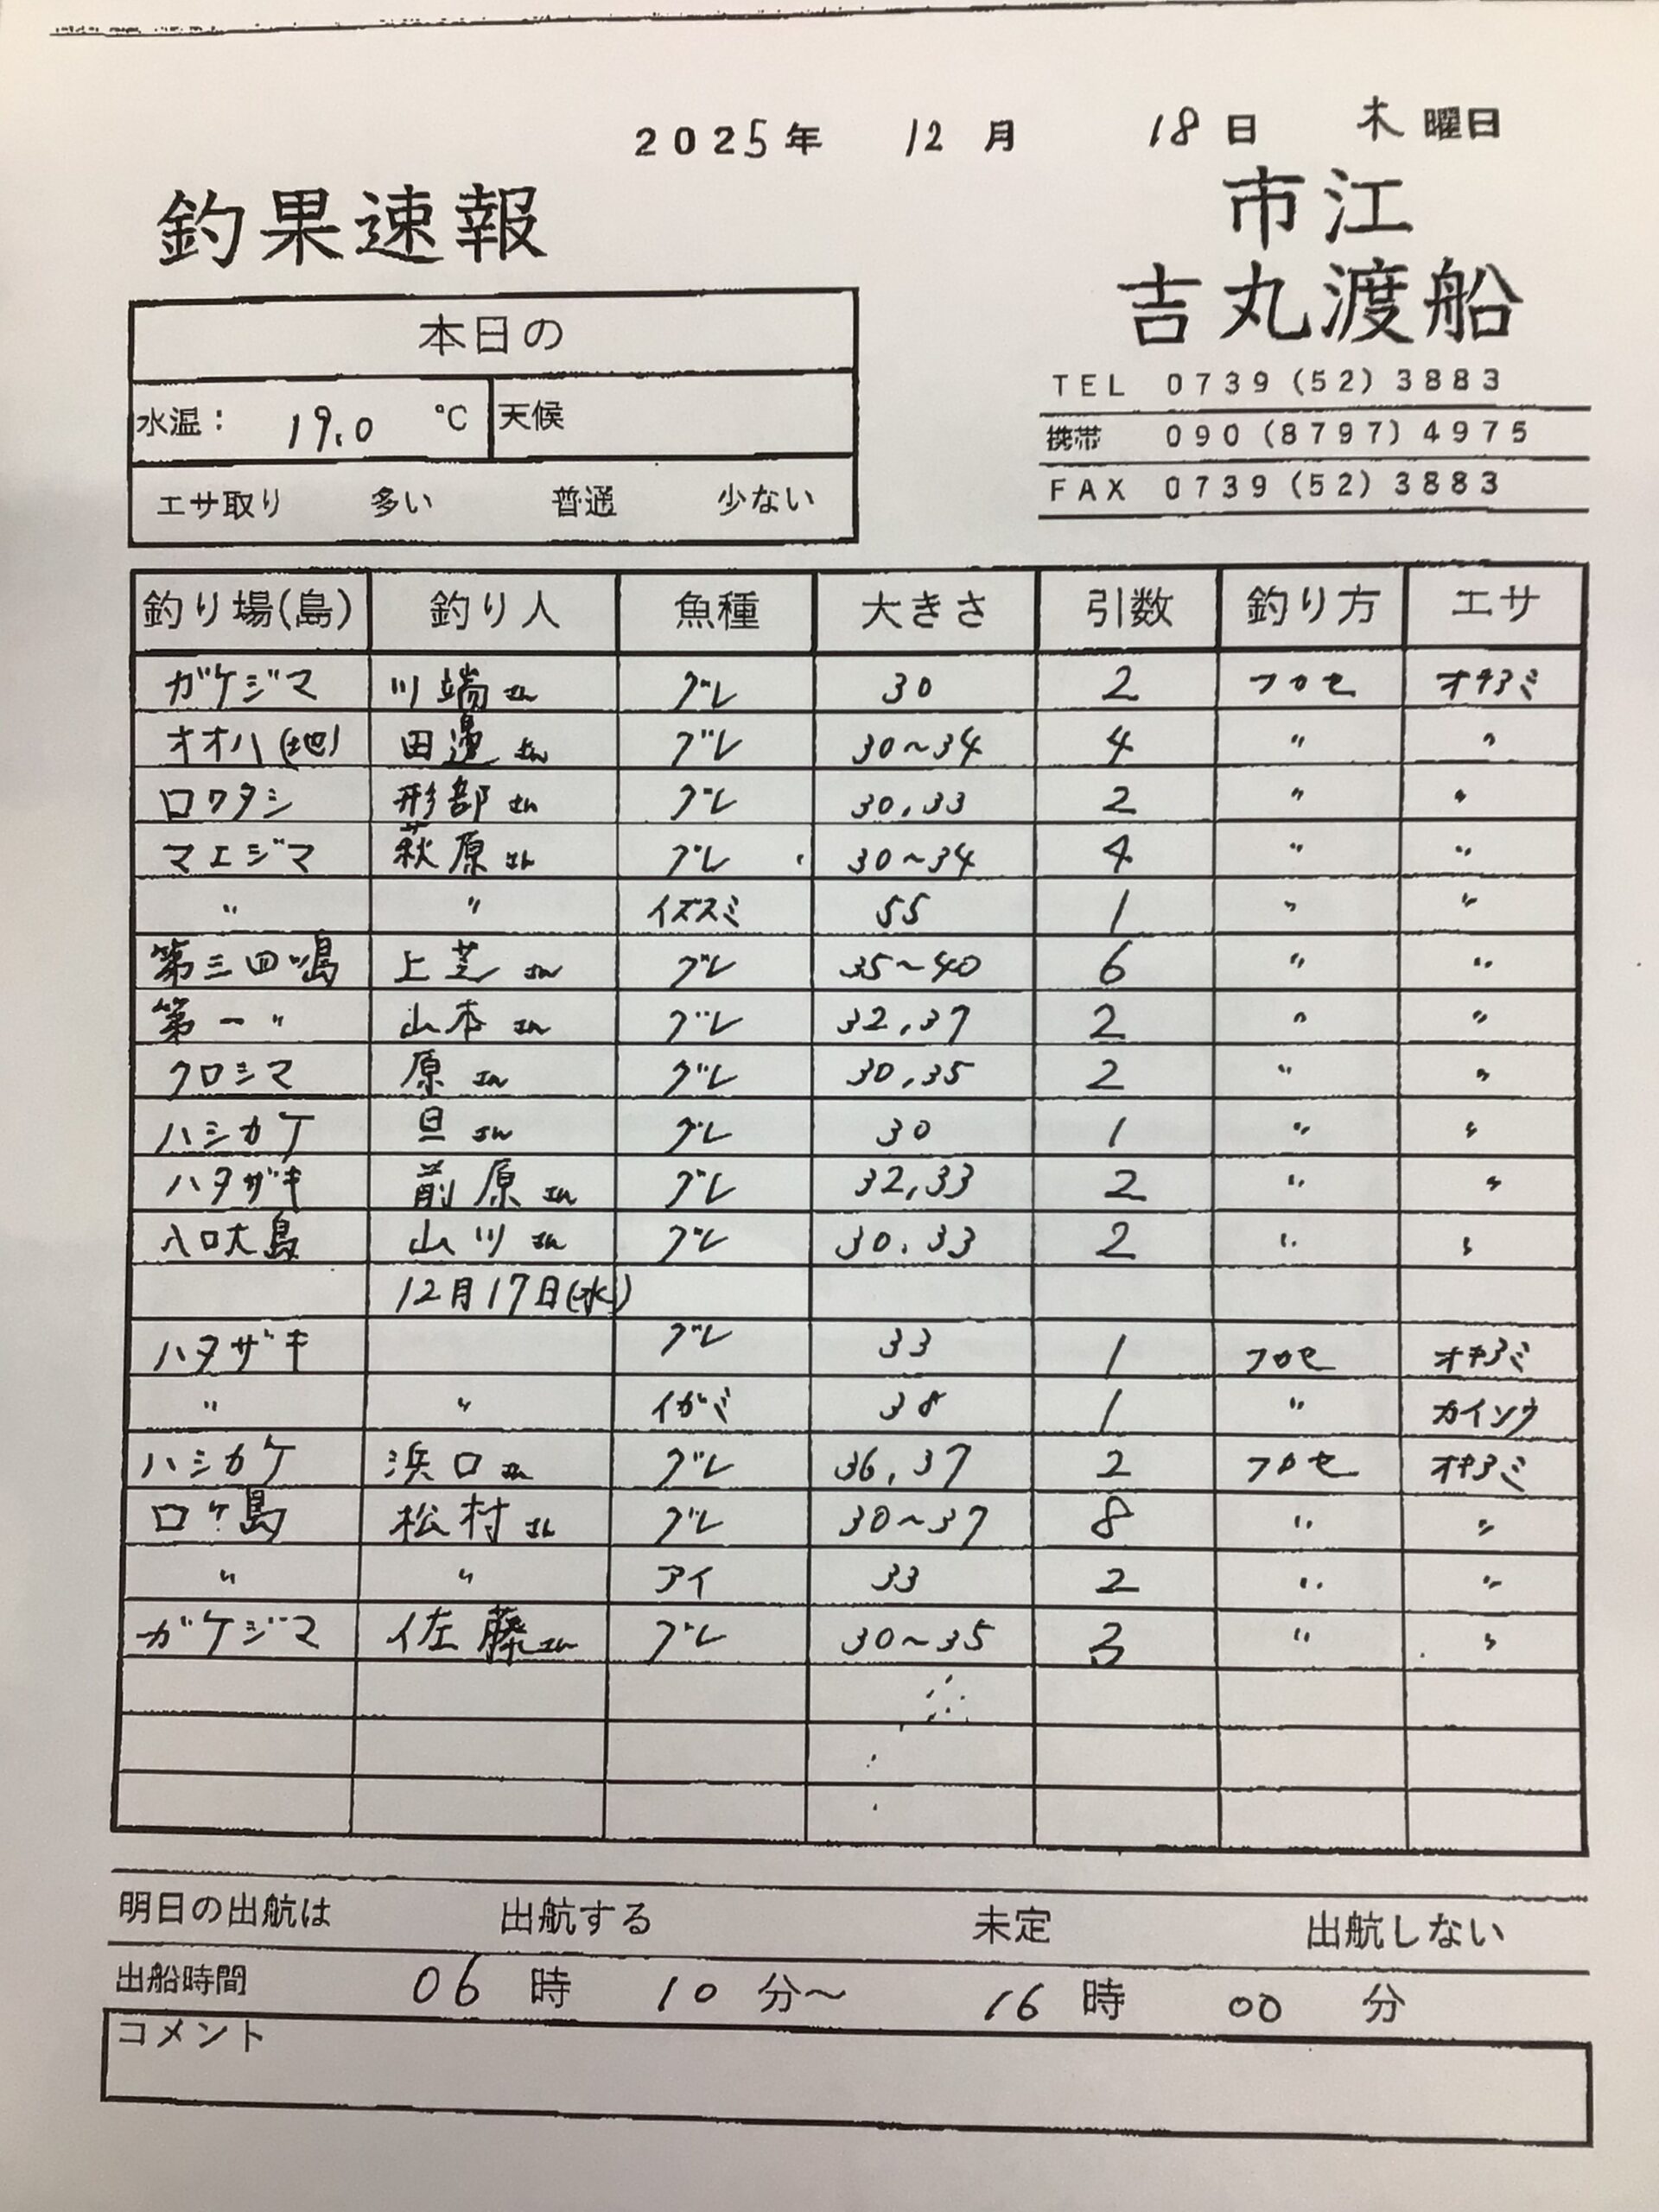 2025年 12月 18日 木曜日
釣果速報
市江
吉丸渡船
本日の
水温： 19.0 ℃ 天候
エサ取り 多い 普通 少ない
TEL 0739(52)3883
携帯 090(8797)4975
FAX 0739(52)3883
釣り場(島) 釣り人 魚種 大きさ 引数 釣り方 エサ
ガケジマ 川端さん グレ 30 2 フカセ オキアミ
オオハ(地) 田邊さん グレ 30～34 4 〃 〃
ロクタシ 形部さん グレ 30,33 2 〃 〃
マエジマ 萩原さん グレ 30～34 4 〃 〃
〃 〃 イズスミ 55 1 〃 〃
第三四ツ島 上芝さん グレ 35～40 6 〃 〃
第一〃 山本さん グレ 32,37 2 〃 〃
クロシマ 原さん グレ 30,35 2 〃 〃
ハシカケ 旦さん グレ 30 1 〃 〃
ハタザキ 前原さん グレ 32,33 2 〃 〃
八口大島 山川さん グレ 30,33 2 〃 〃
12月17日(水)
ハタザキ グレ 33 1 フカセ オキアミ
〃 〃 イガミ 38 1 〃 カイソウ
ハシカケ 浜口さん グレ 36,37 2 フカセ オキアミ
口ケ島 松村さん グレ 30～37 8 〃 〃
〃 〃 アイ 33 2 〃 〃
ガケジマ 佐藤さん グレ 30～35 3 〃 〃
明日の出航は 出航する 未定 出航しない
出船時間 06時 10分～ 16時 00分
コメント